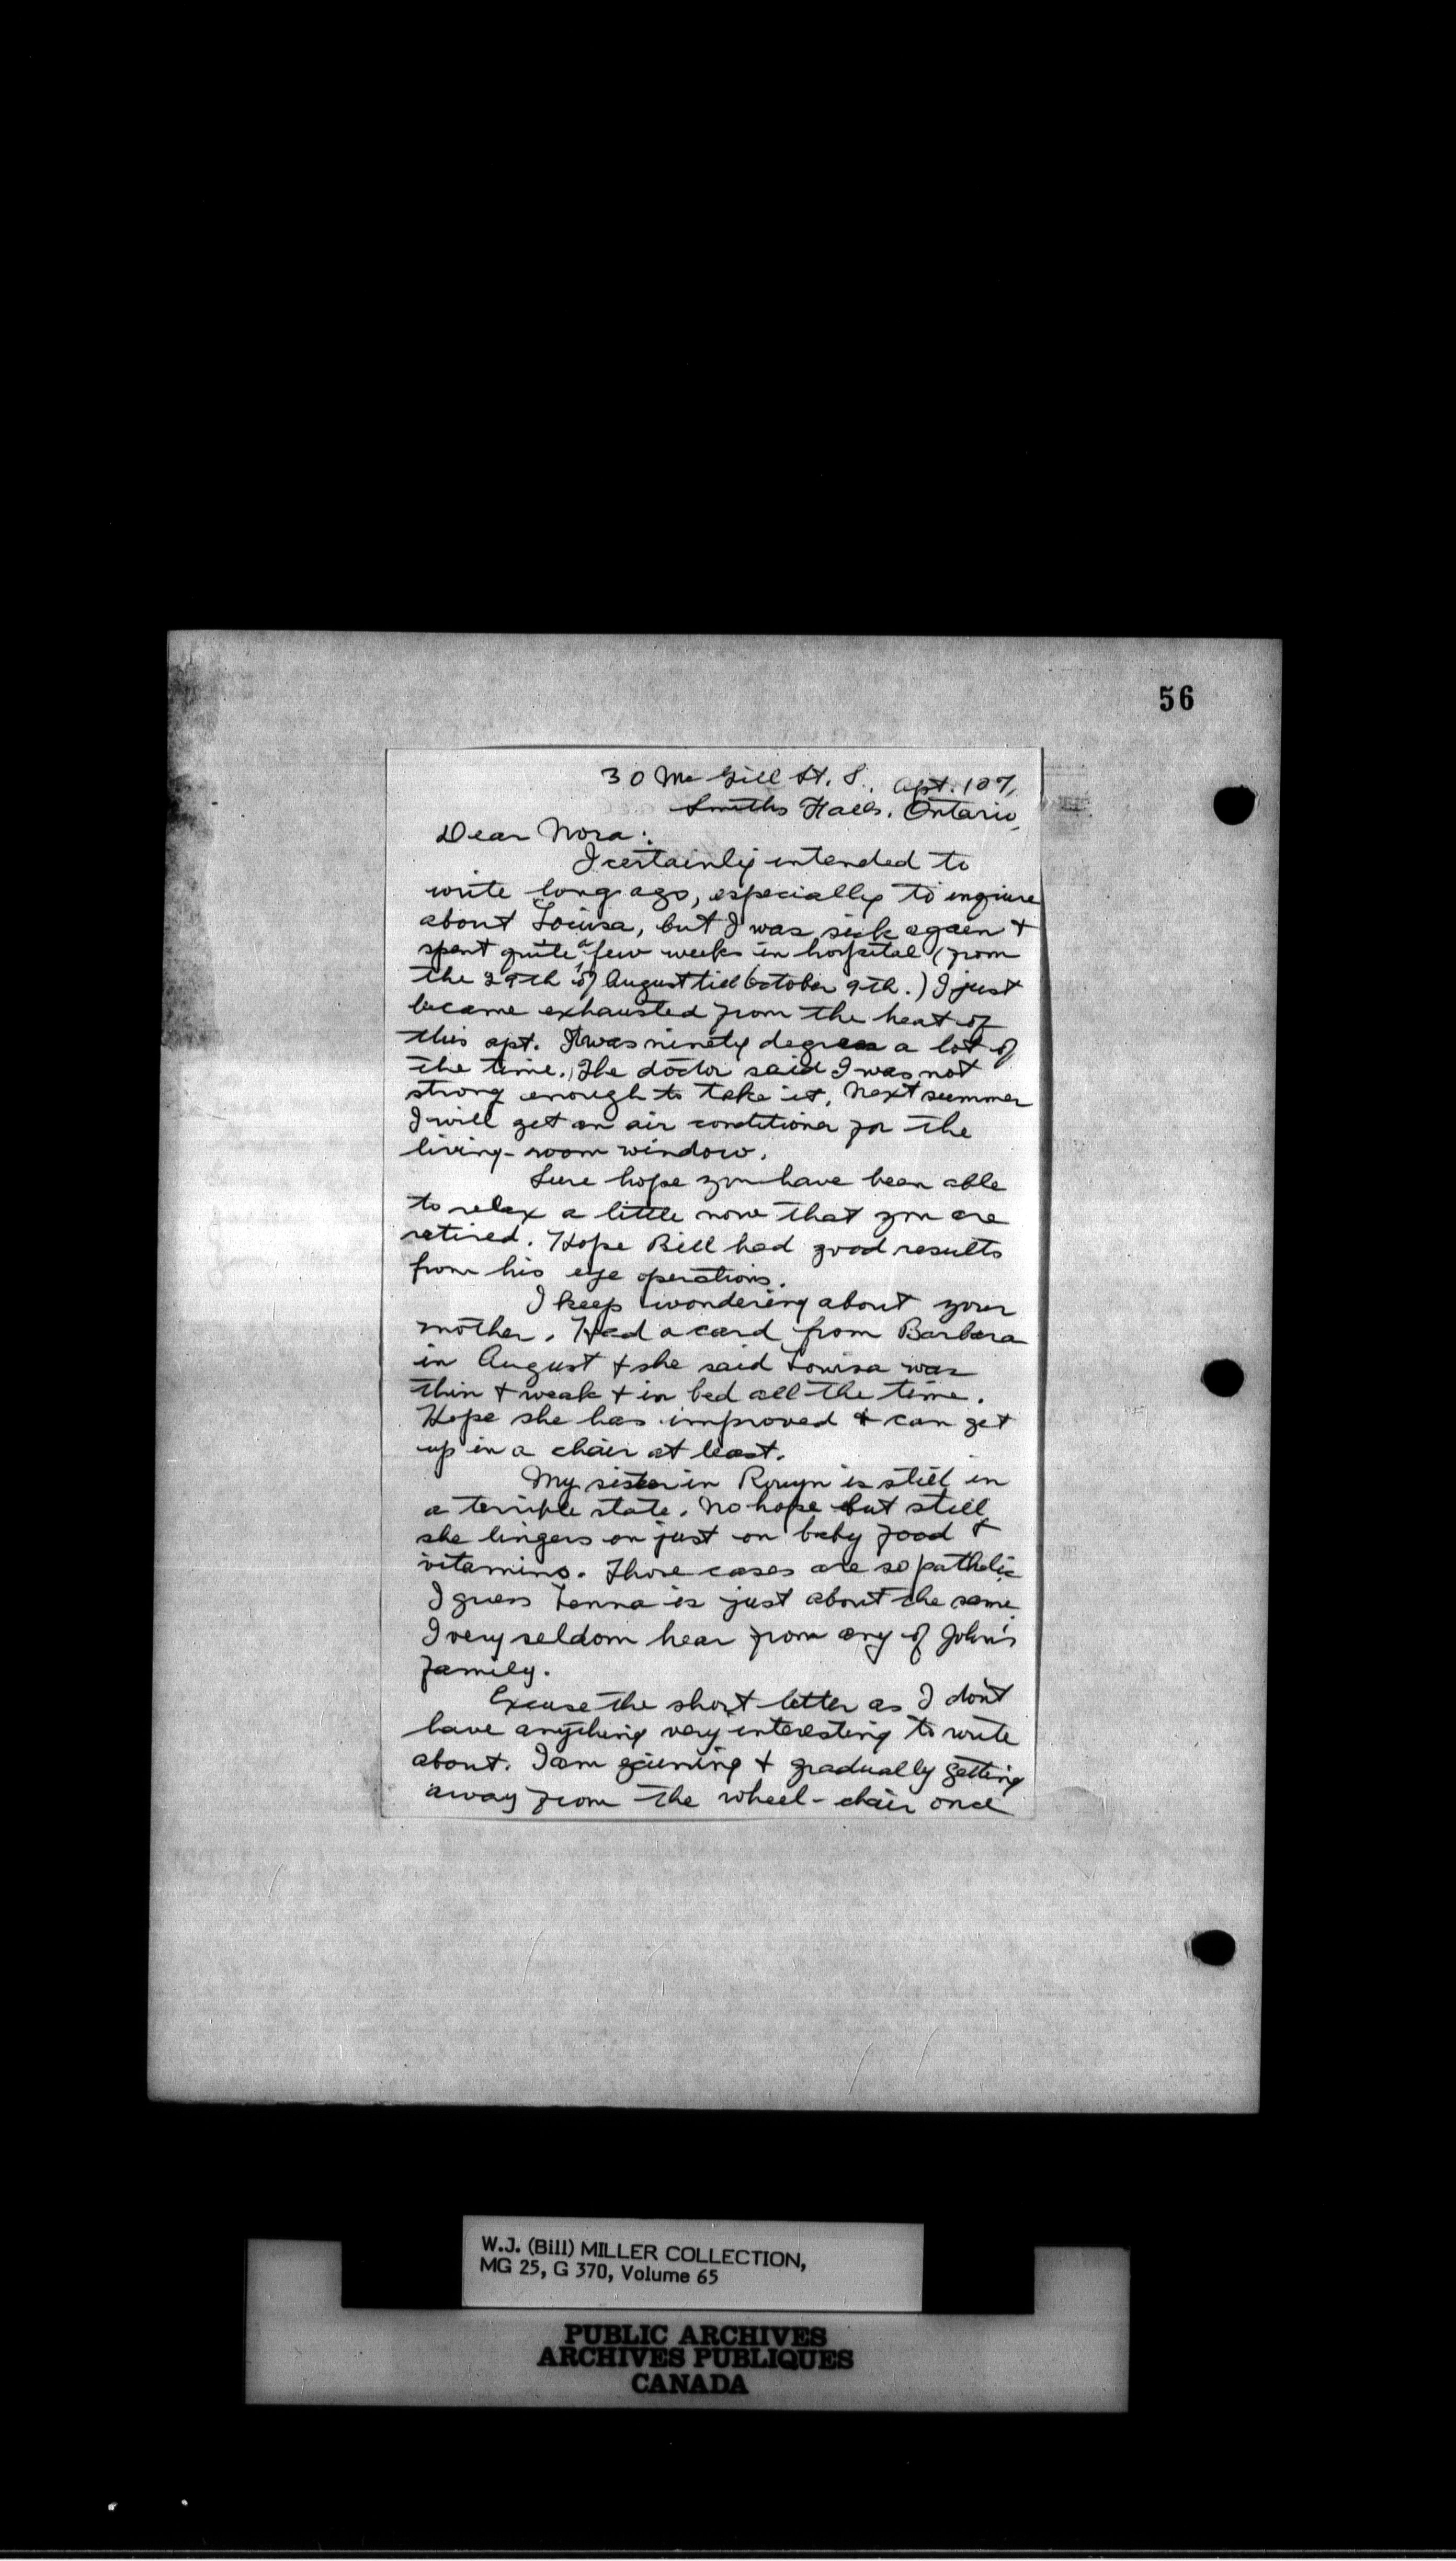 56
30 McGill St. S., Apt. 107,
Smiths Falls, Ontario,
Dear Nora:
I certainly intended to
write long ago, especially to inquire
about Louisa, but I was sick again +
spent quite a few weeks in hospital (from
the 29th of August till October 9th.) I just
became exhausted from the heat of
this apt. It was ninety degrees a lot of
the time. The doctor said I was not
strong enough to take it. Next summer
I will get an air conditioner for the
living-room window.
Sure hope you have been able
to relax a little now that you are
retired. Hope Bill had good results
from his eye operations.
I keep wondering about your
mother. Had a card from Barbara
in August + she said Louisa was
thin + weak + in bed all the time.
Hope she has improved + can get
up in a chair at least.
My sister in Rouyn is still in
a terrible state. No hope but still
she lingers on just on baby food +
vitamins. Those cases are so pathetic
I guess Lenna is just about the same.
I very seldom hear from any of John's
family.
Excuse the short letter as I don't
have anything very interesting to write
about. I am gaining + gradually getting
away from the wheel-chair and
W.J. (Bill) MILLER COLLECTION,
MG 25, G 370, Volume 65
PUBLIC ARCHIVES
ARCHIVES PUBLIQUES
CANADA